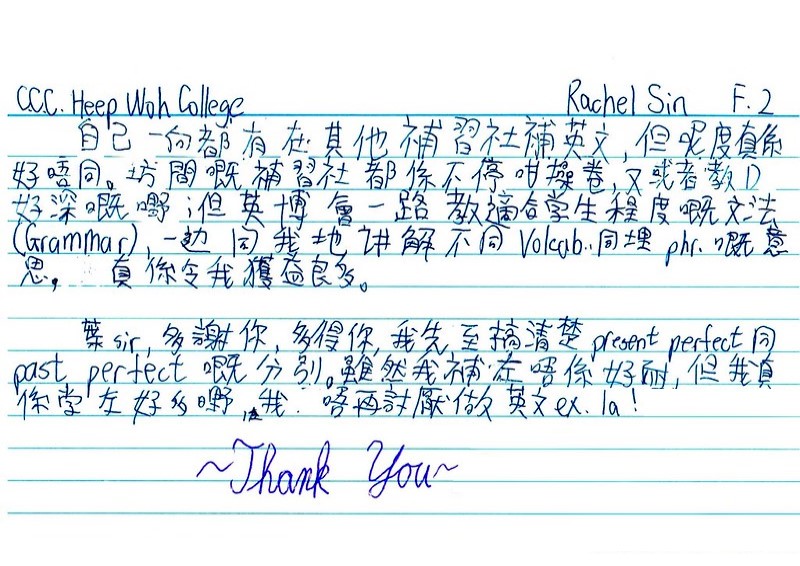 C.C.C. Heep Woh College Rachel Sin F.2
自己一向都有在其他補習社補英文,但呢度真係
好唔同。坊間嘅補習社都係不停咁操卷,又或者教D
好深嘅嘢;但英博會一路教適合学生程度嘅文法
(Grammar),一边同我地讲解不同Volcab.同埋phr.嘅意
思,真係令我獲益良多。
葉sir,多謝你,多得你,我先至搞清楚present perfect同
past perfect嘅分別。雖然我補左唔係好耐,但我真
係学左好多嘢,我唔再討厭做英文ex.la!
~Thank You~